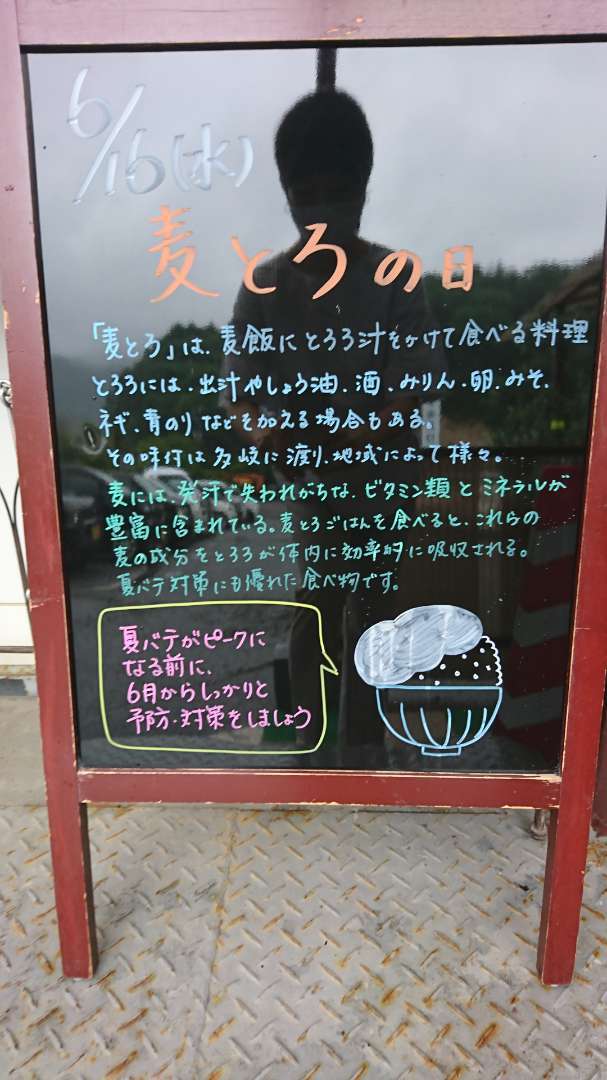 6/16(水)
麦とろの日
「麦とろ」は、麦飯にとろろ汁をかけて食べる料理
とろろには、出汁やしょう油、酒、みりん、卵、みそ、
ネギ、青のりなどを加える場合もある。
その味付は多岐に渡り、地域によって様々。
麦には、発汗で失われがちな、ビタミン類とミネラルが
豊富に含まれている。麦とろごはんを食べると、これらの
麦の成分をとろろが体内に効率的に吸収される。
夏バテ対策にも優れた食べ物です。
夏バテがピークに
なる前に、
6月からしっかりと
予防・対策をしましょう